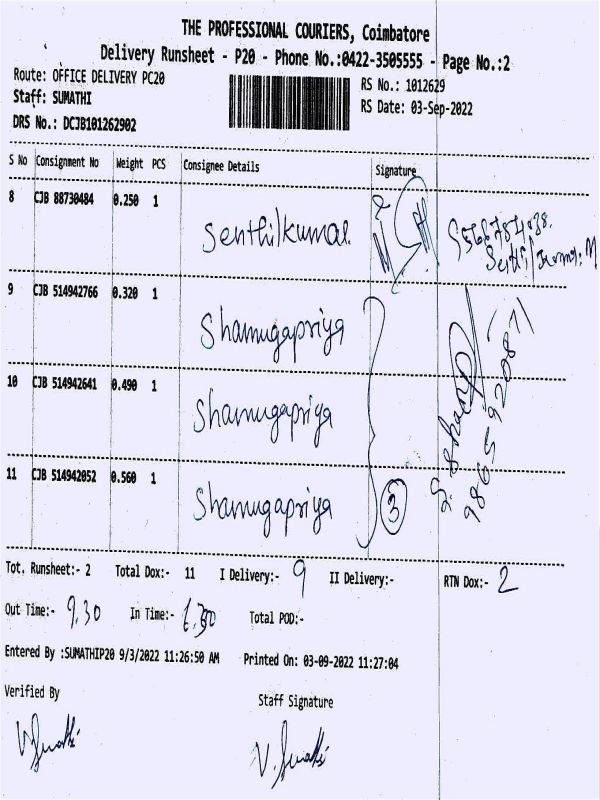 THE PROFESSIONAL COURIERS, Coimbatore
Delivery Runsheet - P20 - Phone No.:0422-3505555 - Page No.:2
Route: OFFICE DELIVERY PC20
RS No.: 1012629
Staff: SUMATHI
RS Date: 03-Sep-2022
DRS No.: DCJB101262902
S No Consignment No Weight PCS Consignee Details Signature
8 CJB 88730484 0.250 1 Senthilkumar
9 CJB 514942766 0.320 1 Shamugapriya
10 CJB 514942641 0.490 1 Shamugapriya
11 CJB 514942052 0.560 1 Shamugapriya
3
Tot. Runsheet:- 2 Total Dox:- 11 I Delivery:- 9 II Delivery:- RTN Dox:- 2
Out Time:- 9.30 In Time:- Total POD:-
Entered By :SUMATHIP20 9/3/2022 11:26:50 AM Printed On: 03-09-2022 11:27:04
Verified By Staff Signature